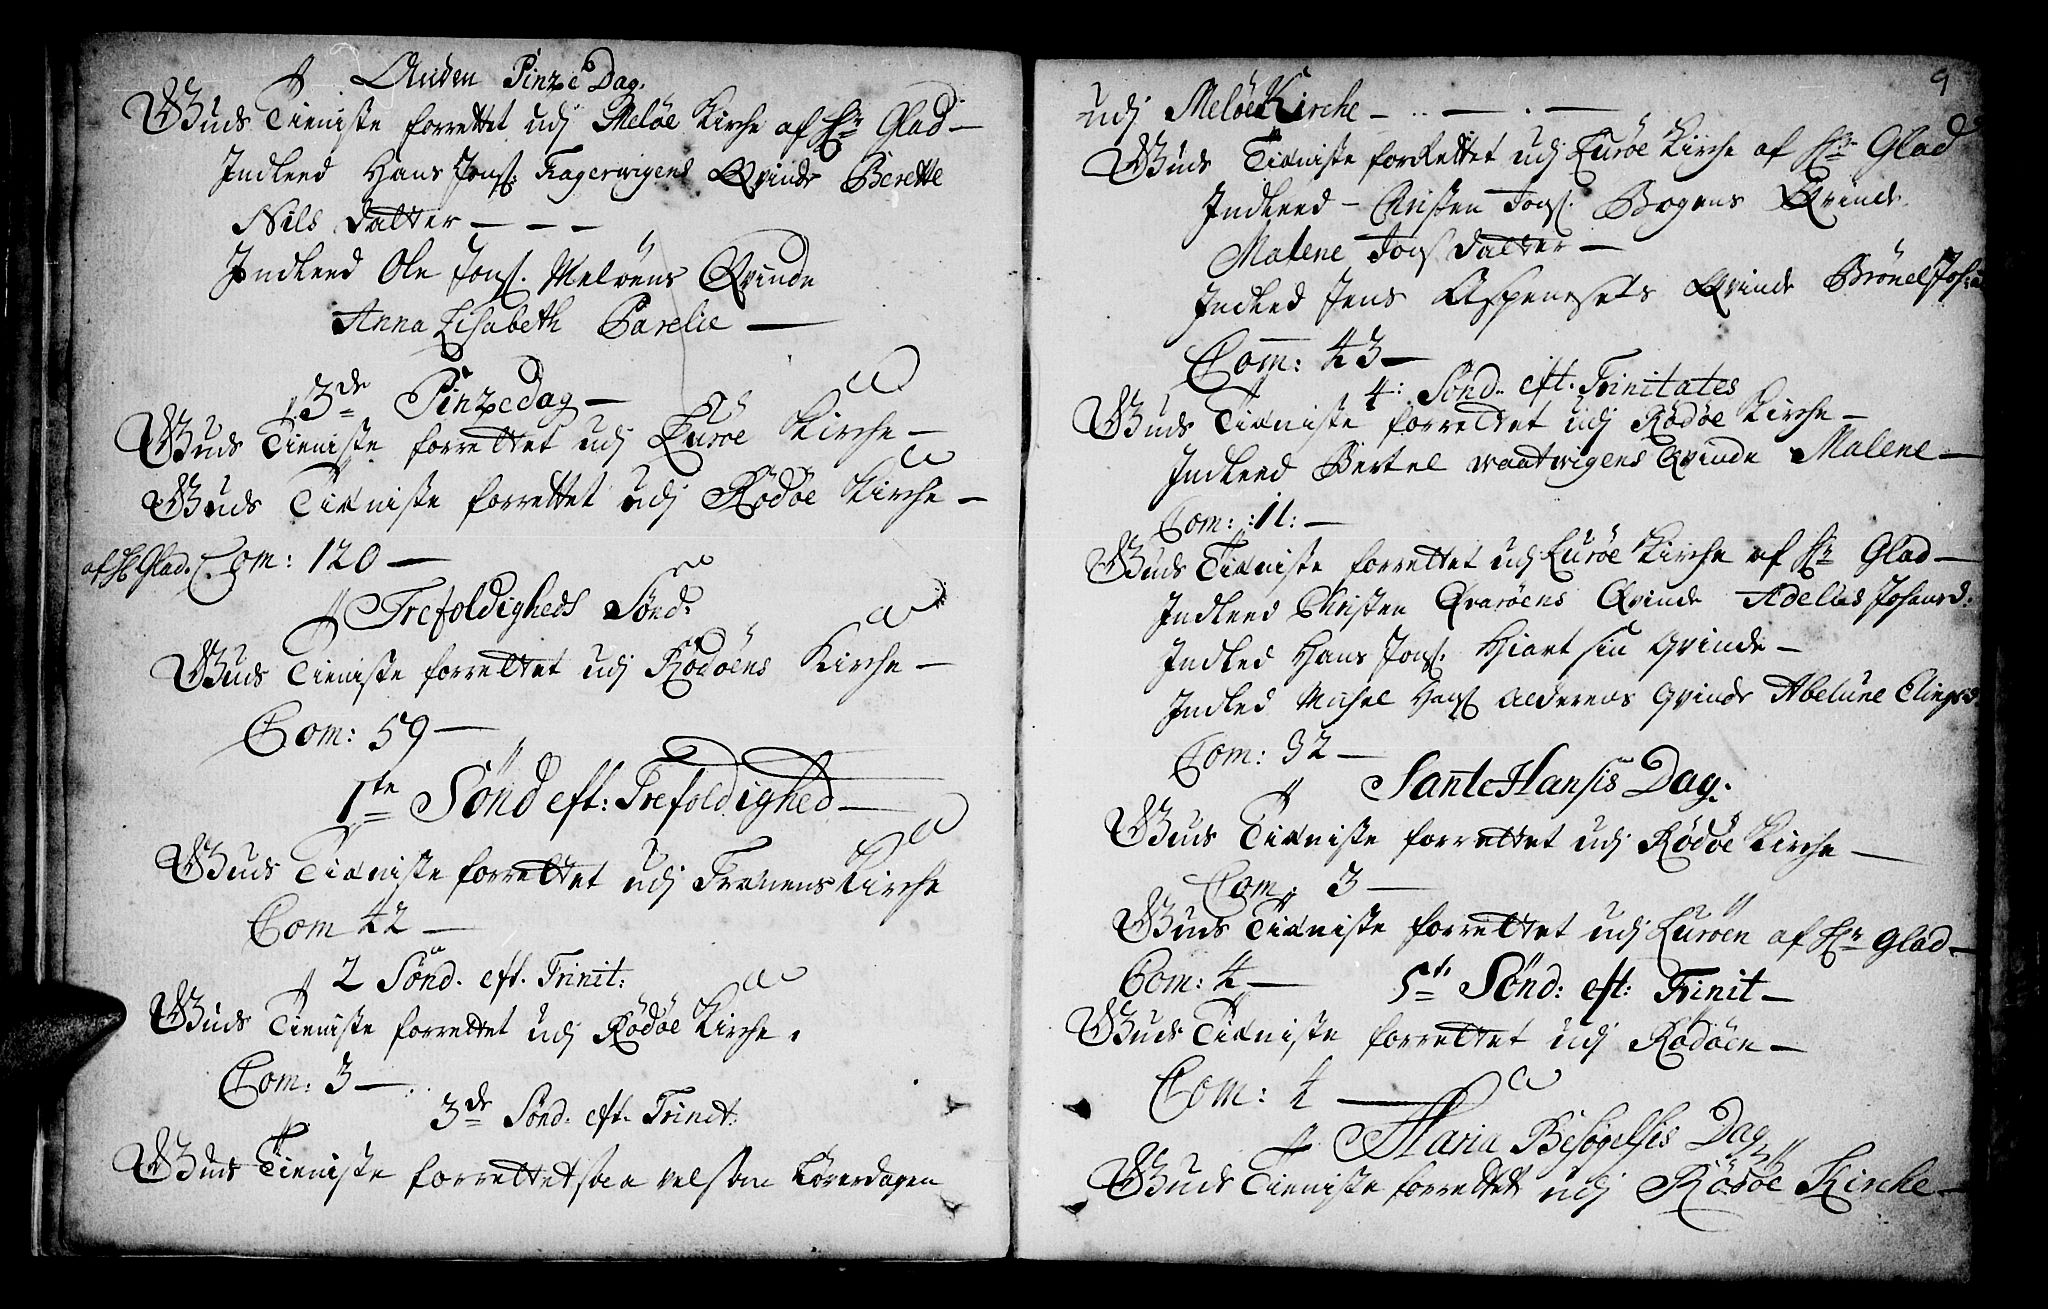 Anden Pinze Dag.
Guds Tieniste forrettet udj Meløe Kirche af Hr Glad —
Indleed Hans Jons: Fagerwigens Qvinde Berette
Nils Datter — — —
Indleed Ole Jons: Meløens Qvinde
Anna Lisabeth Parelie —
3de Pinzedag —
Guds Tieniste forrettet udj Lurøe Kirche —
Guds Tieniste forrettet udj Rødøe Kirche —
af Hr Glad. Com: 120 —
Trefoldigheds Sønd:
Guds Tieniste forrettet udj Rødøens Kirche —
Com: 59 —
1te Sønd eft: Trefoldighed —
Guds Tieniste forrettet udj Trænens Kirche
Com 42 —
2 Sønd. eft. Trinit:
Guds Tieniste forrettet udj Rødøe Kirche.
Com: 3 —
3de Sønd. eft. Trinit:
Guds Tieniste forrettet saa vel som Løverdagen
9
udj Meløe Kirche —
Guds Tieniste forrettet udj Lurøe Kirche af Hr Glad
Indleed — Christen Jons: Bogens Qvinde
Malene Jons Datter —
Indleed Jens Aspenesets Qvinde
Com: 43 —
4: Sønd. eft. Trinitates
Guds Tieniste forrettet udj Rødøe Kirche —
Indleed Bertel waatwigens Qvinde Malene —
Com: :11: —
Guds Tieniste forrettet udj Lurøe Kirche af Hr Glad —
Indleed Christen Qvarøens Qvinde Adelus Johansd:
Indled Hans Jons: Hiort sin Qvinde —
Indled Michel Hans: Qvinde Abelune
Com: 32 —
Sante Hansis Dag.
Guds Tieniste forrettet udj Rødøe Kirche —
Com: 3 —
Guds Tieniste forrettet udj Lurøen af Hr Glad —
Com: 4 —
5te Sønd: eft: Trinit —
Guds Tieniste forrettet udj Rødøen —
Com: 4 —
Maria Besøgelsis Dag
Guds Tieniste forrettet udj Rødøe Kirche —